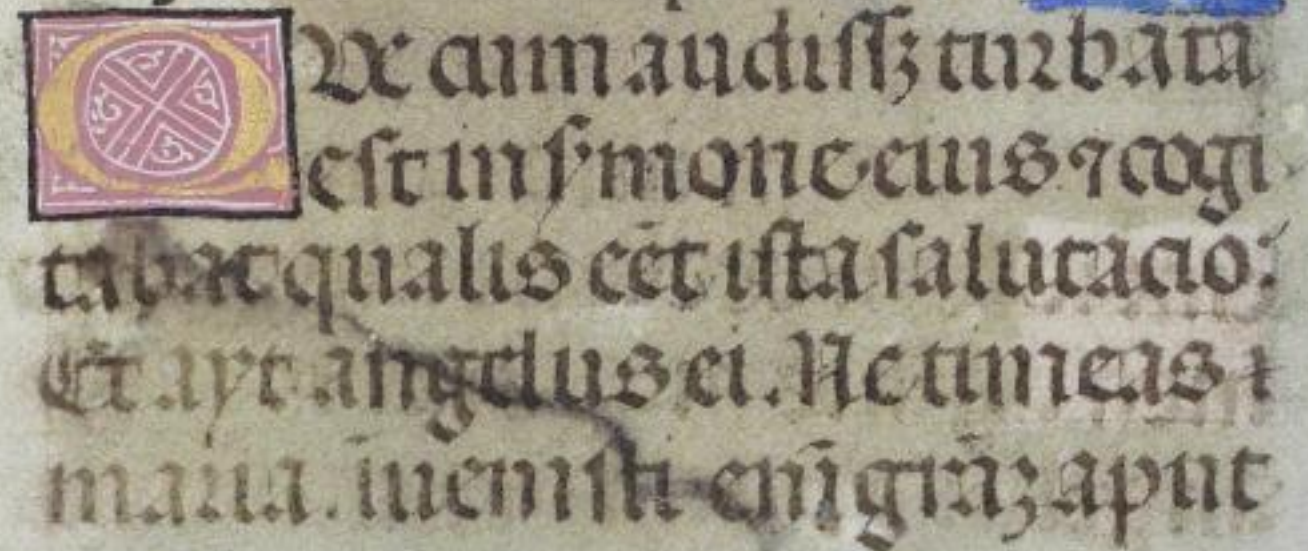 QVe cum audissꝫ turbata
est in sʼmone eius ⁊ cogi
tabat qualis eēt ista salutacio:
Et ayt angelus ei. Ne timeas
maria. īuenisti eni᷑ grāꝫ aput